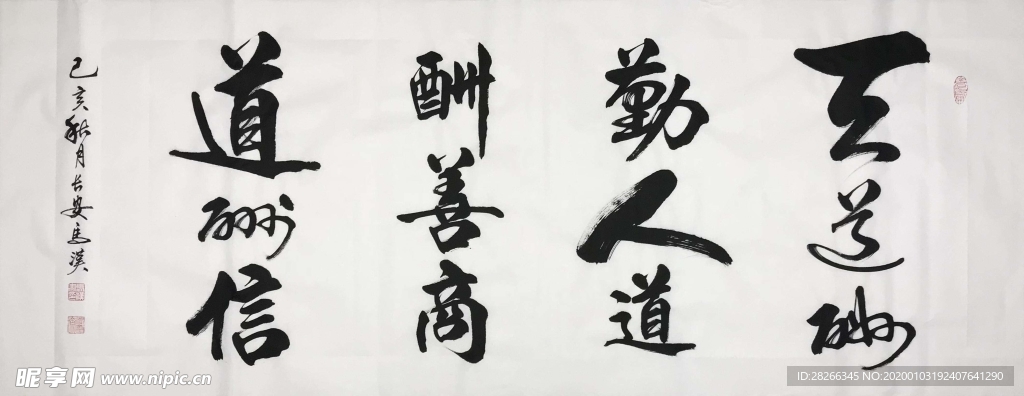 天道酬
勤人道
酬善商
道酬信
己亥秋月长安马汉
昵享网 www.nipic.cn
ID:28266345 NO:20200103192407641290